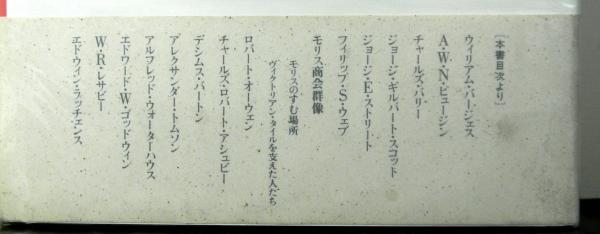 [本書目次より]
ウィリアム・バージェス
A・W・N・ピュージン
チャールズ・バリー
ジョージ・ギルバート・スコット
ジョージ・E・ストリート
フィリップ・S・ウェブ
モリス商会群像
モリスのすむ場所
ヴィクトリアン・タイルを支えた人たち
ロバート・オーウェン
チャールズ・ロバート・アシュビー
デシムス・バートン
アレクサンダー・トムソン
アルフレッド・ウォーターハウス
エドワード・W・ゴッドウィン
W・R・レサビー
エドウィン・ラッチェンス